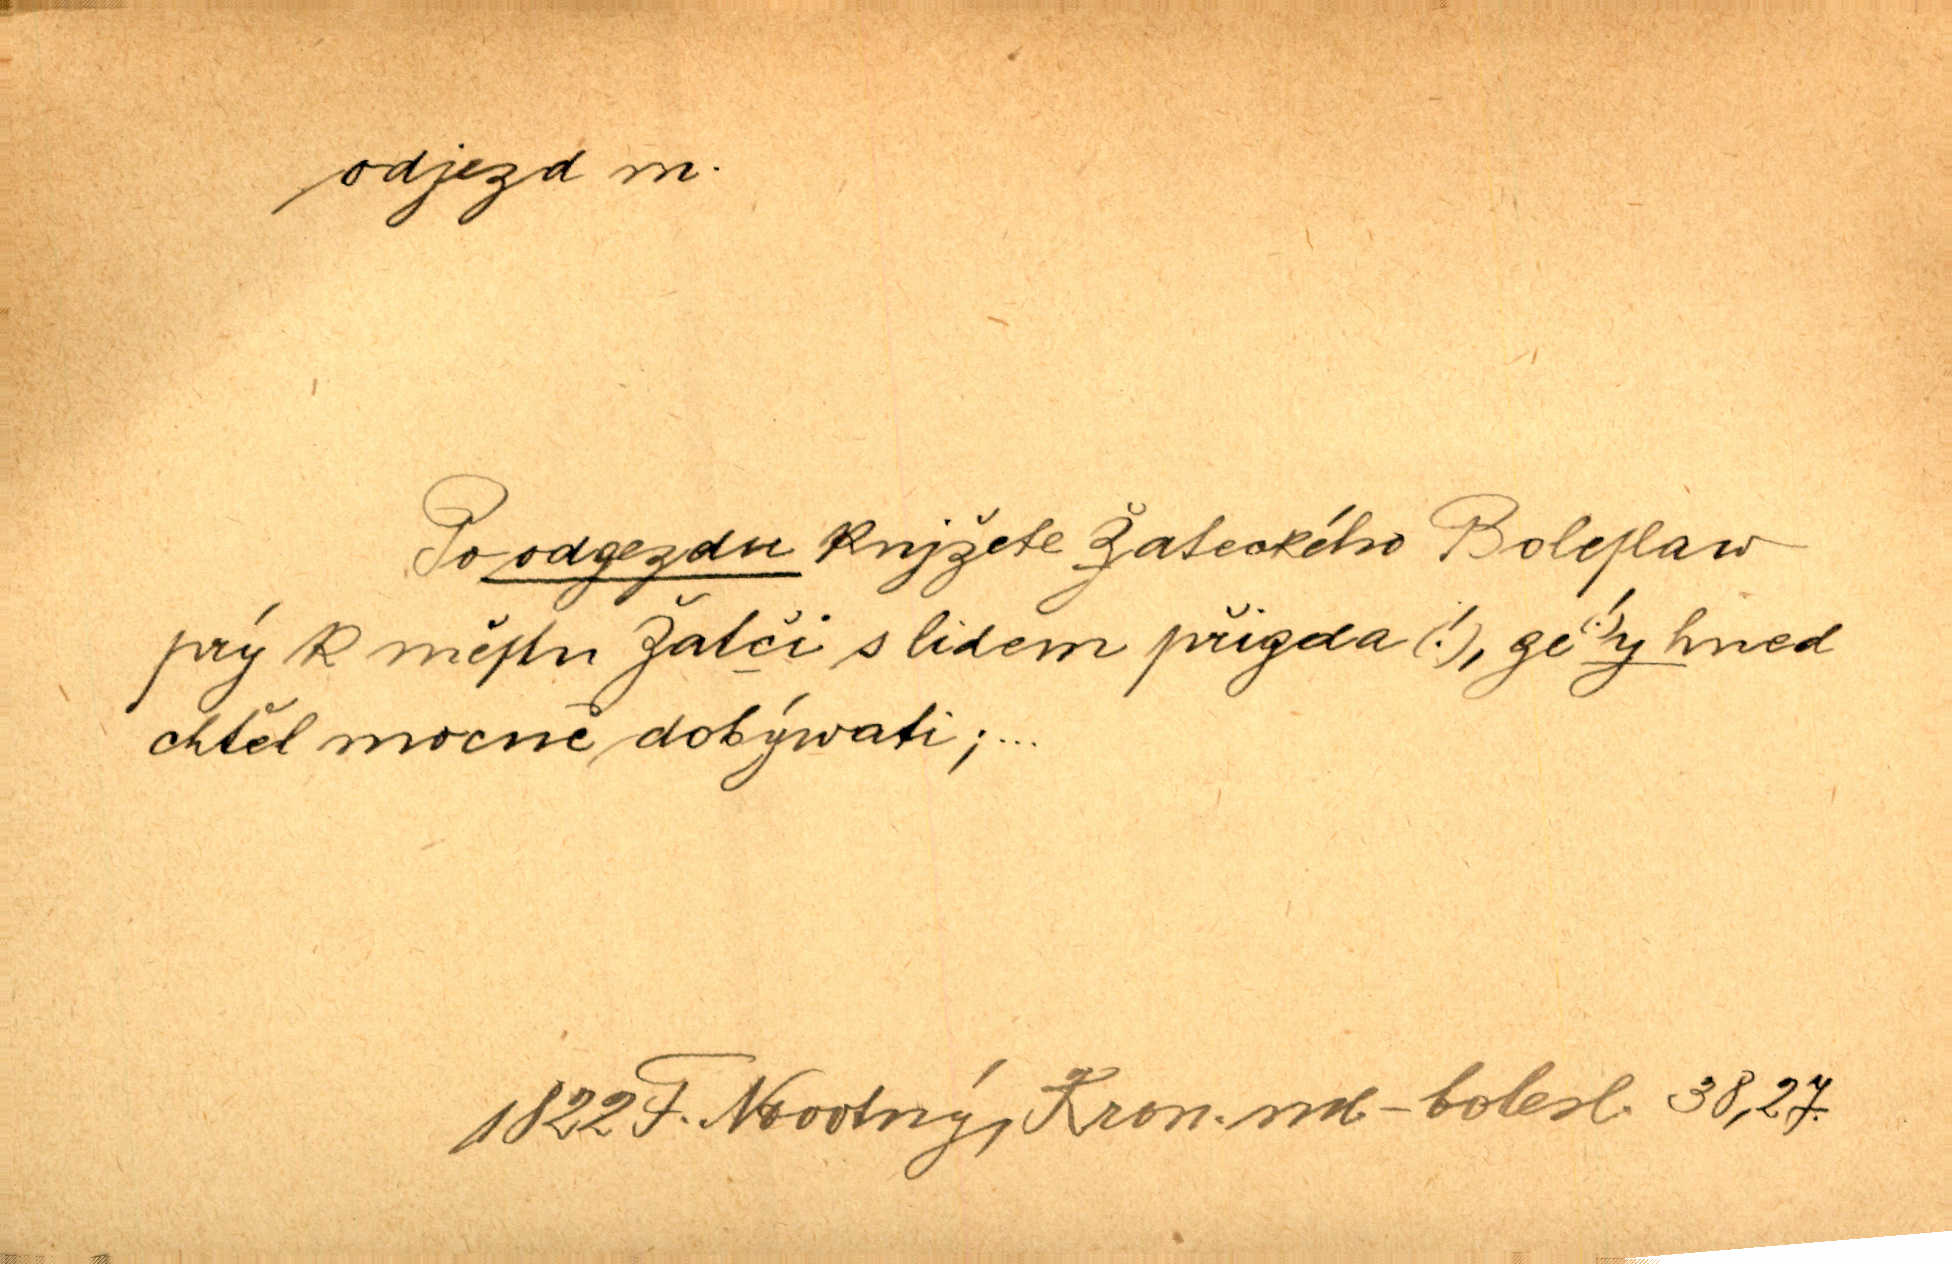 odjezd m.
Po odgezdu knjžete Žateckého Boleſlaw
prý k měſtu Žatči s lidem přigda (!), gé(!)y hned
chtěl mocně dobýwati; ...
1822 F. Novotný, Kron. ml.-bolesl. 38,27.